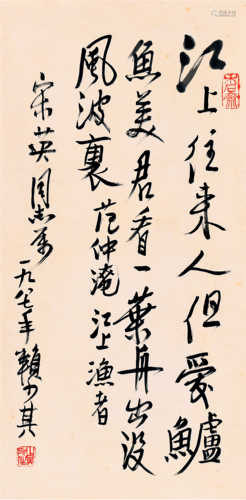 江上往来人但愛鱸
魚美君看一葉舟出没
風波裏 范仲淹 江上漁者
宋英同志属
一九八七年賴少其